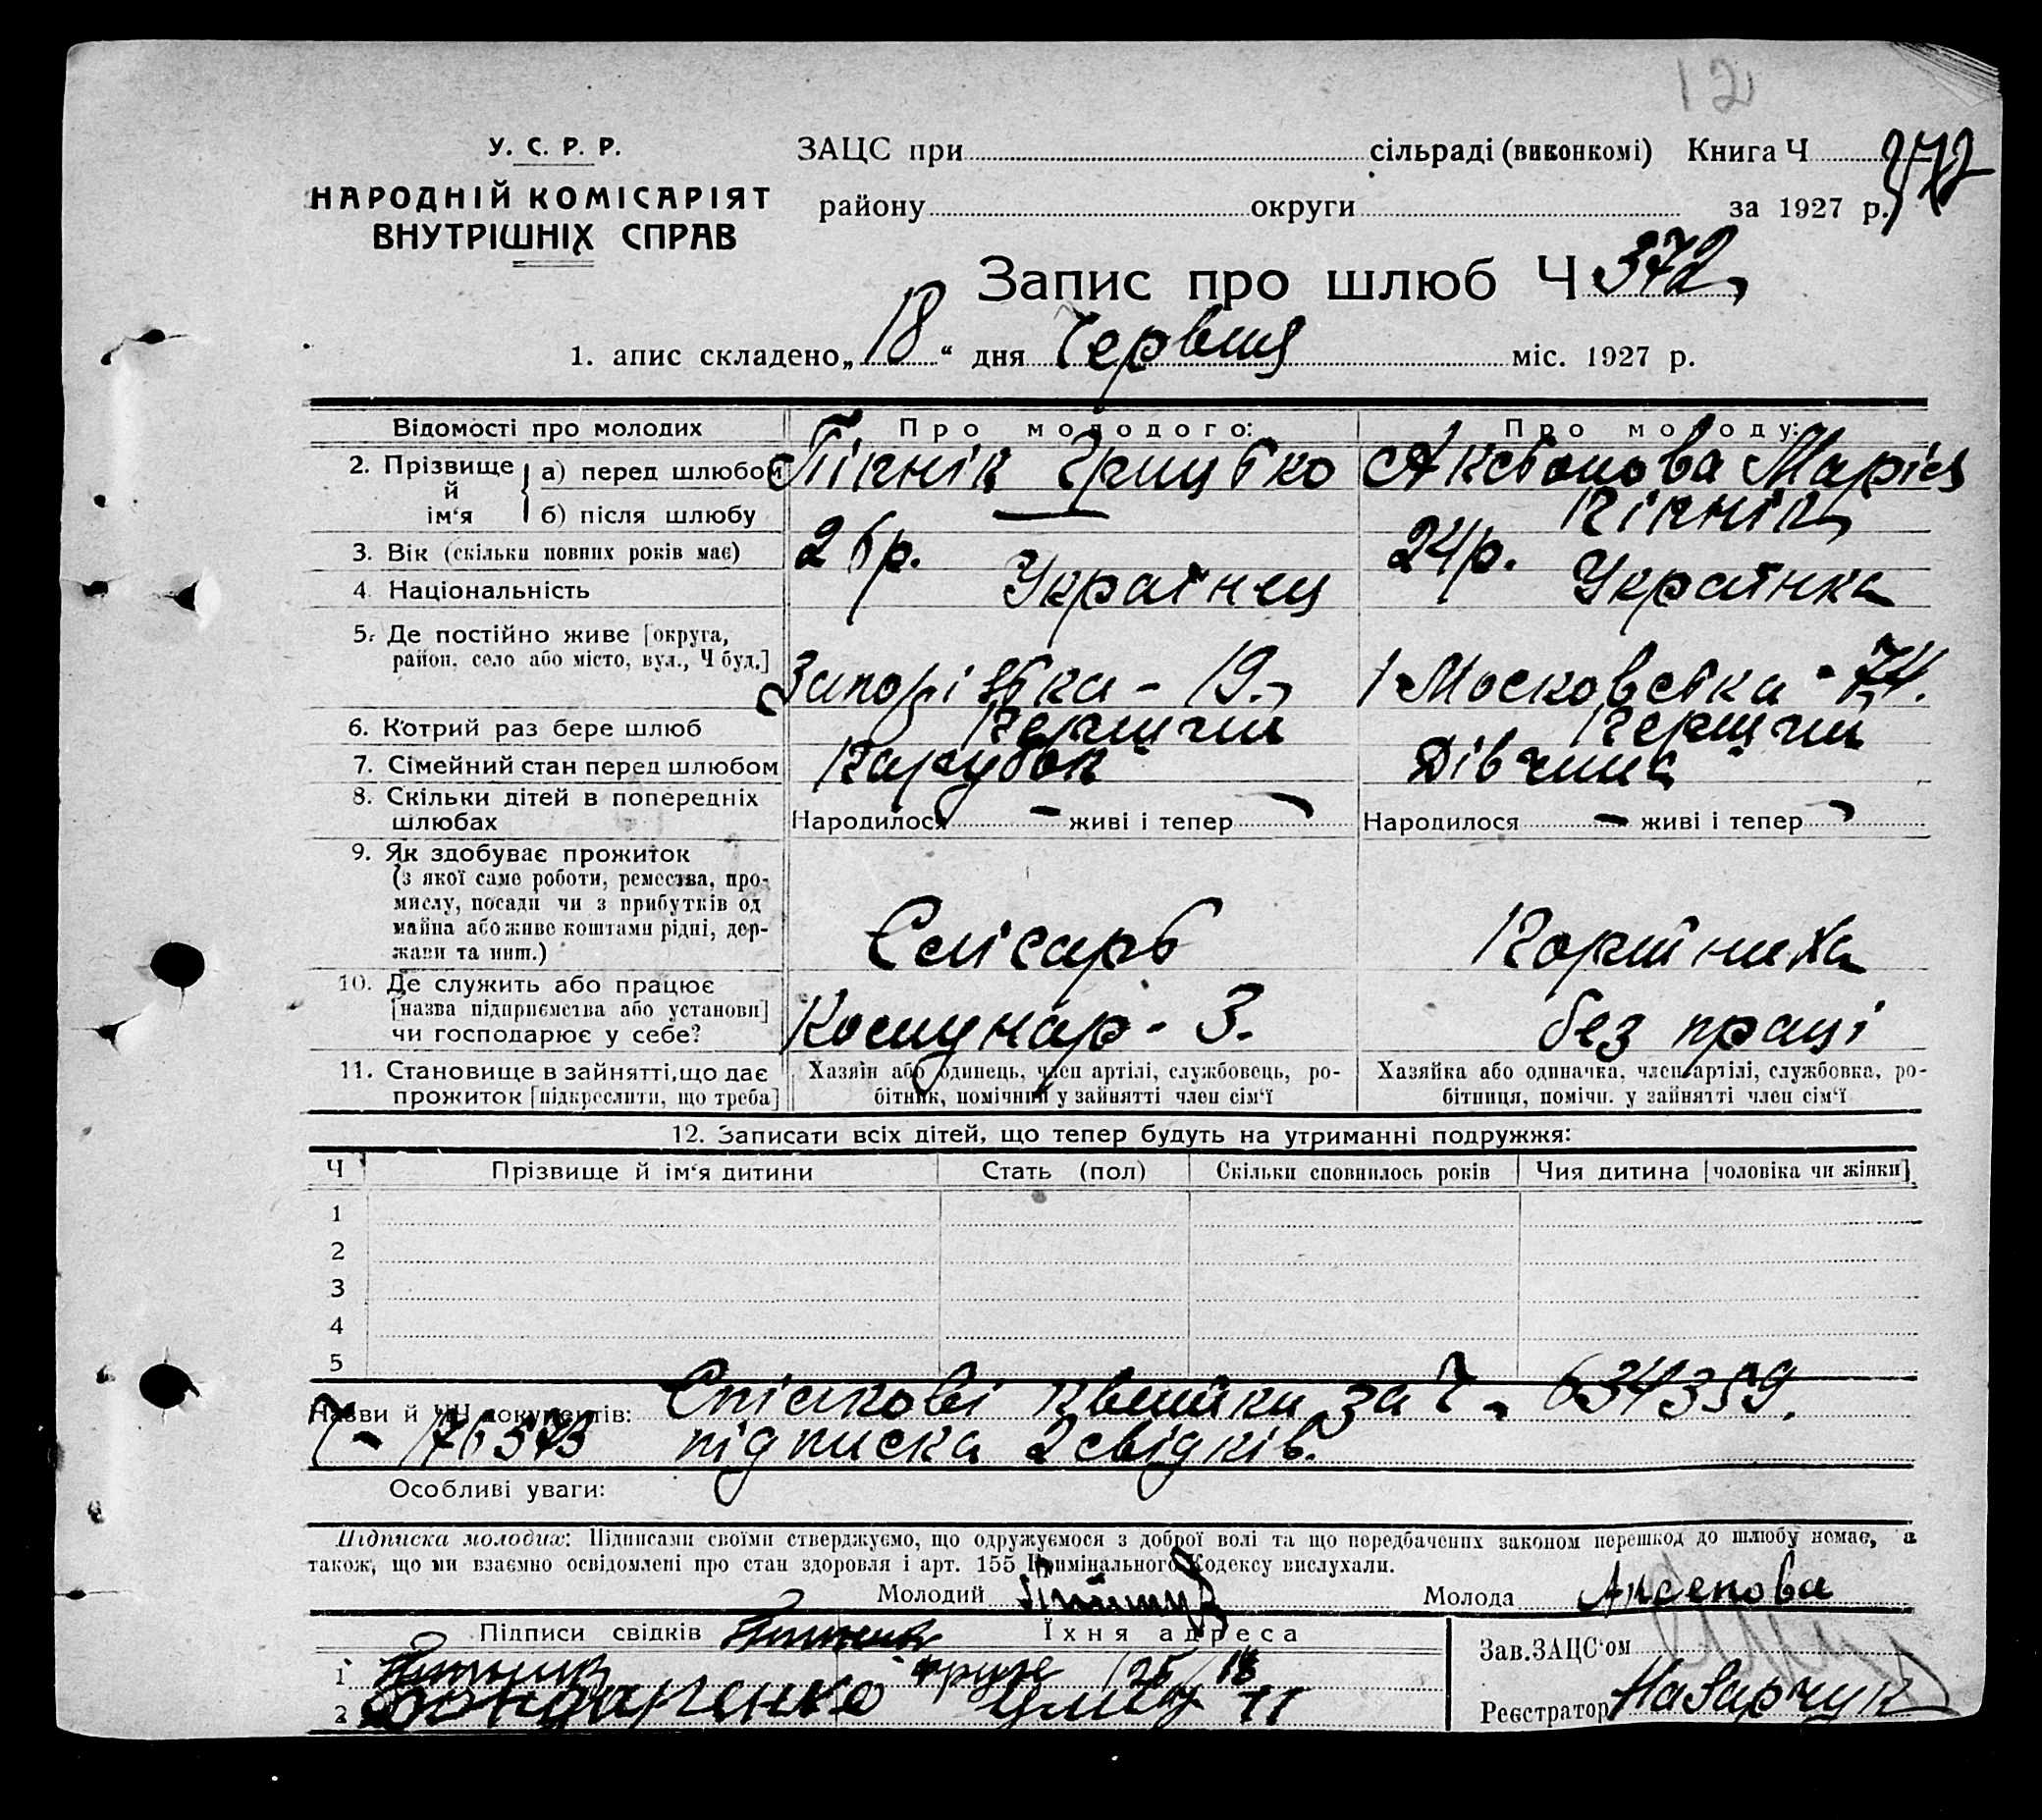 12
У. С. Р. Р.
НАРОДНІЙ КОМІСАРІЯТ
ВНУТРІШНІХ СПРАВ
ЗАЦС при сільраді (виконкомі) Книга Ч 372
району округи за 1927 р.
Запис про шлюб Ч 372
1. апис складено „18“ дня Червня міс. 1927 р.
Відомості про молодих Про молодого: Про молоду:
2. Прізвище й ім‘я а) перед шлюбом Пікнік Грицько Аксьонова Марія
б) після шлюбу — Пікнік
3. Вік (скільки повних років має) 26р. 24р.
4 Національність Українец Українка
5. Де постійно живе [округа, район, село або місто, вул., Ч буд.] Запорізька - 19. 1 Московська - 74.
6. Котрий раз бере шлюб Перший Перший
7. Сімейний стан перед шлюбом Парубок Дівчина
8. Скільки дітей в попередніх шлюбах Народилося — живі і тепер — Народилося — живі і тепер —
9. Як здобуває прожиток
(з якої саме роботи, ремества, про-
мислу, посади чи з прибутків од
майна або живе коштами рідні, дер-
жави та инш.) Слісарь
10. Де служить або працює
[назва підприємства або установи]
чи господарює у себе? Комунар - З. без праці
11. Становище в зайнятті, що дає
прожиток [підкреслити, що треба]
Хазяїн або одинець, член артілі, службовець, ро-
бітник, помічний у зайнятті член сім‘ї
Хазяйка або одиначка, член артілі, службовка, ро-
бітниця, помічн. у зайнятті член сім‘ї
12. Записати всіх дітей, що тепер будуть на утриманні подружжя:
Ч Прізвище й ім‘я дитини Стать (пол) Скільки сповнилось років Чия дитина [чоловіка чи жінки]
1
2
3
4
5
Назви й ЧЧ документів: за Ч - 634359.
Ч - 176373 підписка 2 свідків.
Особливі уваги:
Підписка молодих: Підписами своїми стверджуємо, що одружуємося з доброї волі та що передбачених законом перешкод до шлюбу немає, а
також, що ми взаємно освідомлені про стан здоровля і арт. 155 Кримінального Кодексу вислухали.
Молодий Молода Аксенова
Підписи свідків Їхня адреса
1
2 Бондаренко
Зав. ЗАЦС‘ом
Реєстратор Назарчук